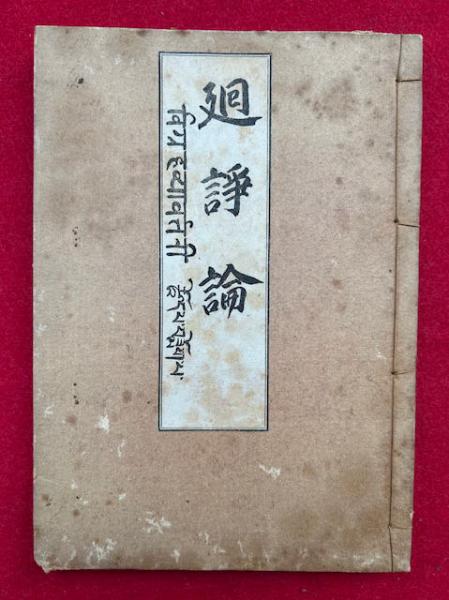 廻諍論
विग्रहव्यावर्तनी
རྩོད་པ་བཟློག་པ་